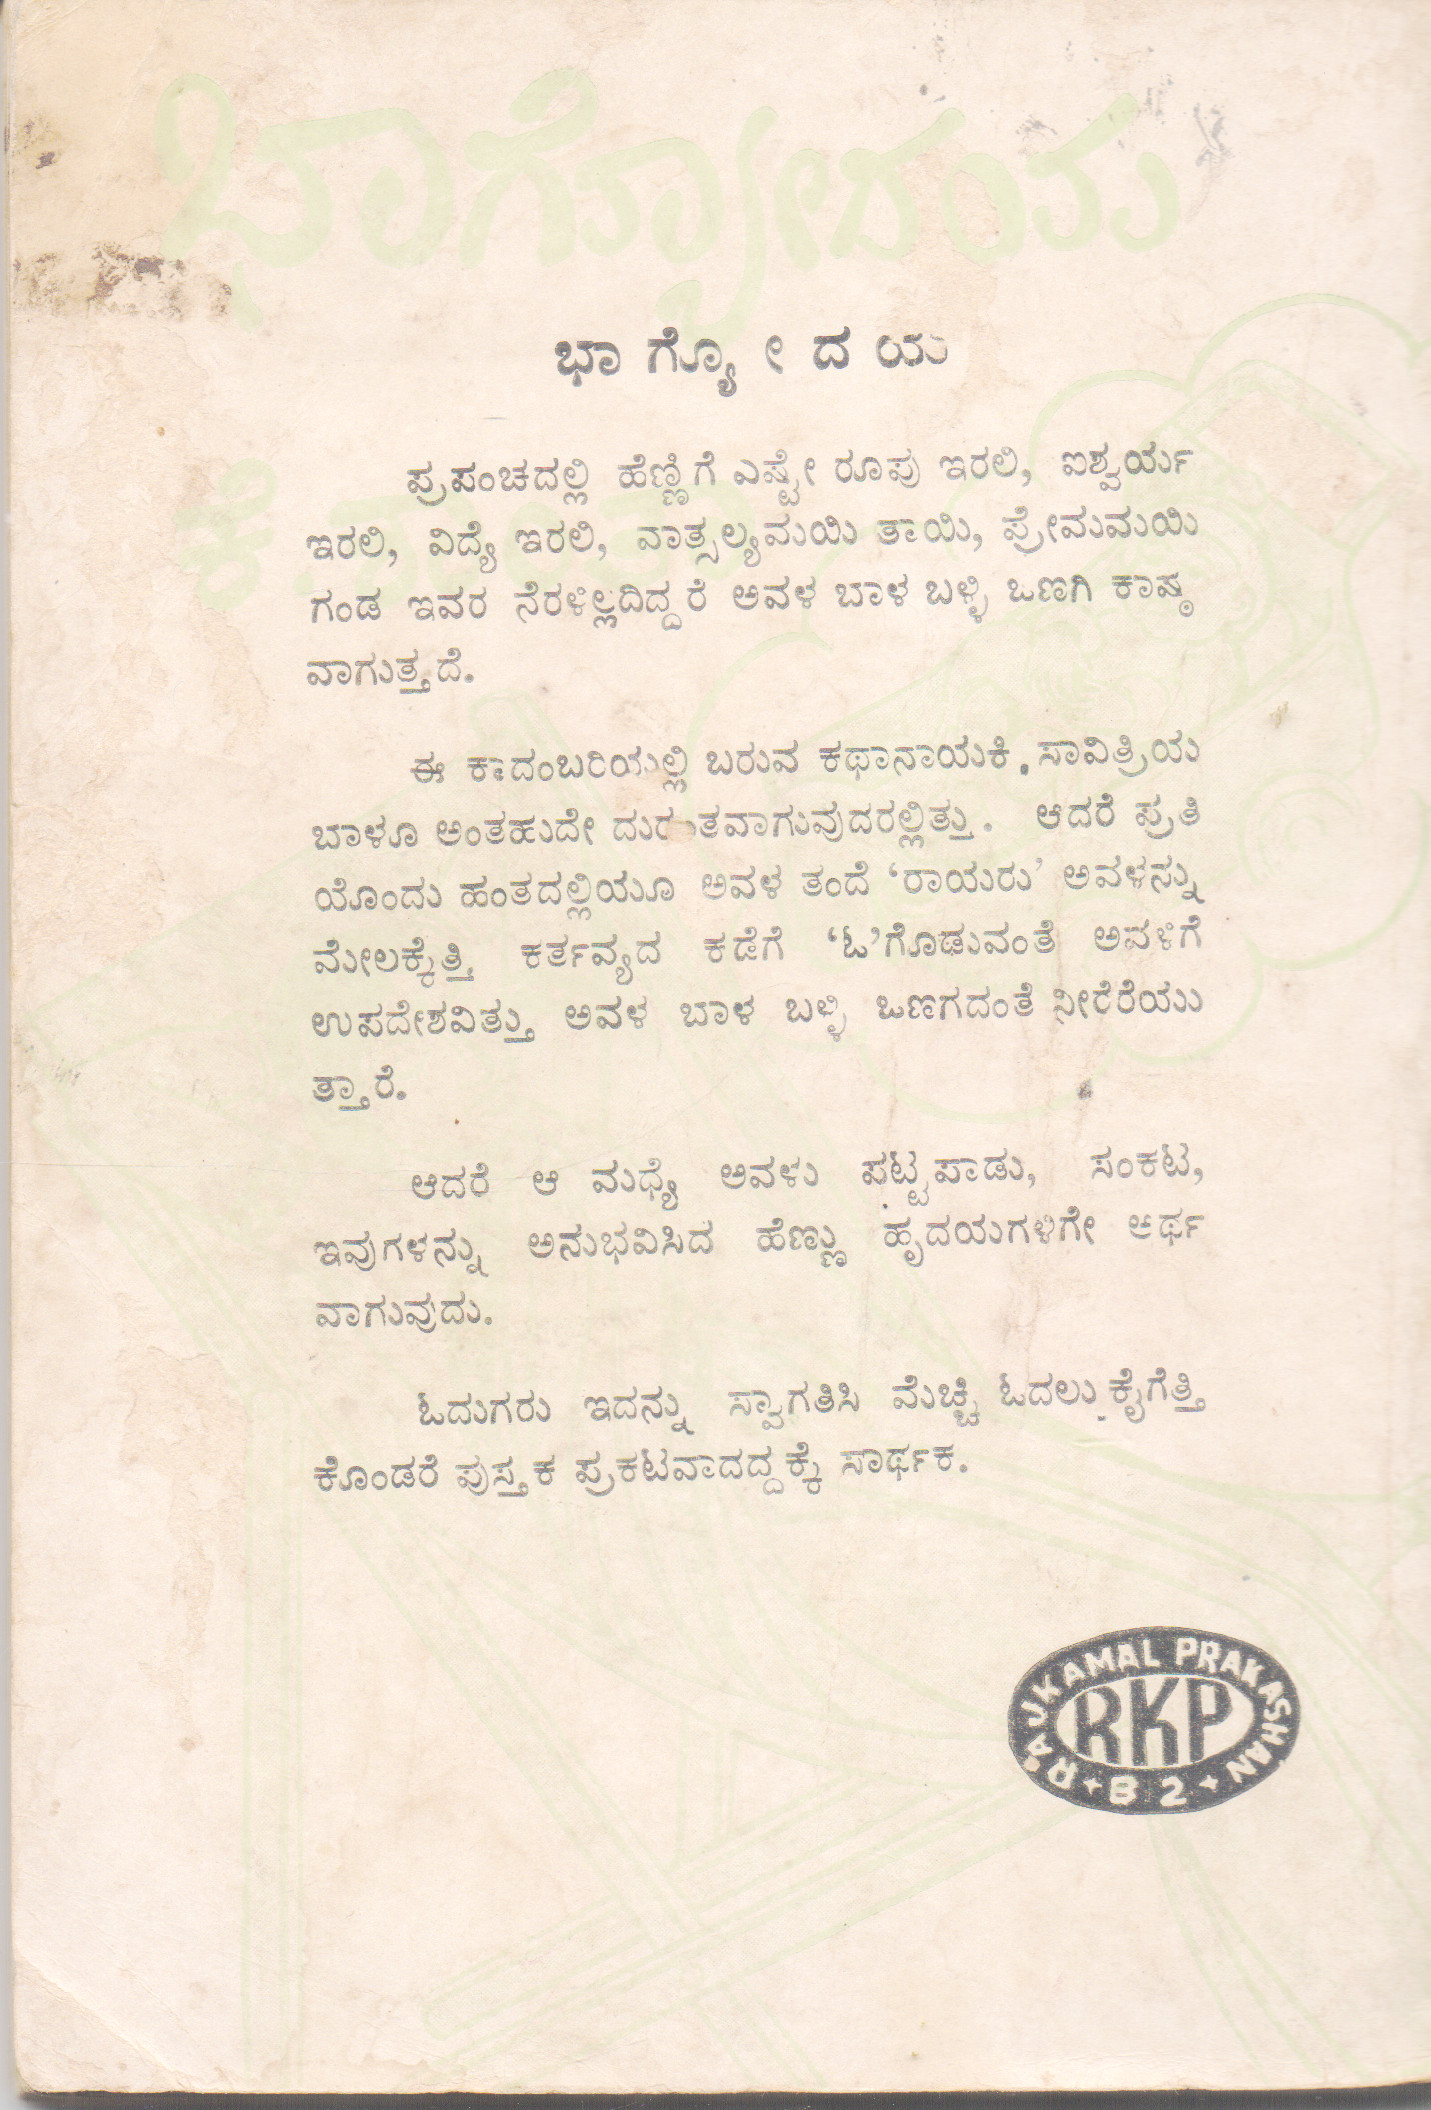 ಭಾಗ್ಯೋದಯ
ಭಾಗ್ಯೋದಯ
ಪ್ರಪಂಚದಲ್ಲಿ ಹೆಣ್ಣಿಗೆ ಎಷ್ಟೇ ರೂಪು ಇರಲಿ, ಐಶ್ವರ್ಯ
ಇರಲಿ, ವಿದ್ಯೆ ಇರಲಿ, ವಾತ್ಸಲ್ಯಮಯಿ ತಾಯಿ, ಪ್ರೇಮಮಯಿ
ಗಂಡ ಇವರ ನೆರಳಿಲ್ಲದಿದ್ದರೆ ಅವಳ ಬಾಳ ಬಳ್ಳಿ ಒಣಗಿ ಕಾಷ್ಠ
ವಾಗುತ್ತದೆ.
ಈ ಕಾದಂಬರಿಯಲ್ಲಿ ಬರುವ ಕಥಾನಾಯಕಿ ಸಾವಿತ್ರಿಯ
ಬಾಳೂ ಅಂತಹುದೇ ದುರಂತವಾಗುವುದರಲ್ಲಿತ್ತು. ಆದರೆ ಪ್ರತಿ
ಯೊಂದು ಹಂತದಲ್ಲಿಯೂ ಅವಳ ತಂದೆ ‘ರಾಯರು’ ಅವಳನ್ನು
ಮೇಲಕ್ಕೆತ್ತಿ ಕರ್ತವ್ಯದ ಕಡೆಗೆ ‘ಓ’ಗೊಡುವಂತೆ ಅವಳಿಗೆ
ಉಪದೇಶವಿತ್ತು ಅವಳ ಬಾಳ ಬಳ್ಳಿ ಒಣಗದಂತೆ ನೀರೆರೆಯು
ತ್ತಾರೆ.
ಆದರೆ ಆ ಮಧ್ಯೆ ಅವಳು ಪಟ್ಟಪಾಡು, ಸಂಕಟ,
ಇವುಗಳನ್ನು ಅನುಭವಿಸಿದ ಹೆಣ್ಣು ಹೃದಯಗಳಿಗೇ ಅರ್ಥ
ವಾಗುವುದು.
ಓದುಗರು ಇದನ್ನು ಸ್ವಾಗತಿಸಿ ಮೆಚ್ಚಿ ಓದಲು ಕೈಗೆತ್ತಿ
ಕೊಂಡರೆ ಪುಸ್ತಕ ಪ್ರಕಟವಾದದ್ದಕ್ಕೆ ಸಾರ್ಥಕ.
RAJKAMAL PRAKASHAN
RKP
B 2